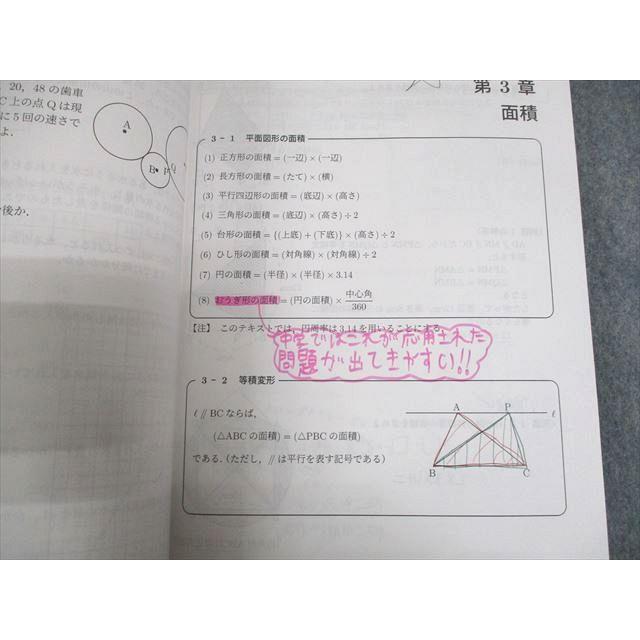 20, 48 の歯車
C 上の点 Q は現
に 5 回の速さで
よ.
A
B
P
後か.
第 3 章
面積
3 − 1 平面図形の面積
(1) 正方形の面積 = (一辺) × (一辺)
(2) 長方形の面積 = (たて) × (横)
(3) 平行四辺形の面積 = (底辺) × (高さ)
(4) 三角形の面積 = (底辺) × (高さ) ÷ 2
(5) 台形の面積 = {(上底) + (下底)} × (高さ) ÷ 2
(6) ひし形の面積 = (対角線) × (対角線) ÷ 2
(7) 円の面積 = (半径) × (半径) × 3.14
(8) おうぎ形の面積 = (円の面積) × 中心角/360
【注】 このテキストでは, 円周率は 3.14 を用いることにする.
中学ではこれが応用された
問題が出てきやすい!!
3 − 2 等積変形
ℓ // BC ならば,
(△ABC の面積) = (△PBC の面積)
である. (ただし, // は平行を表す記号である)
A P ℓ
B C